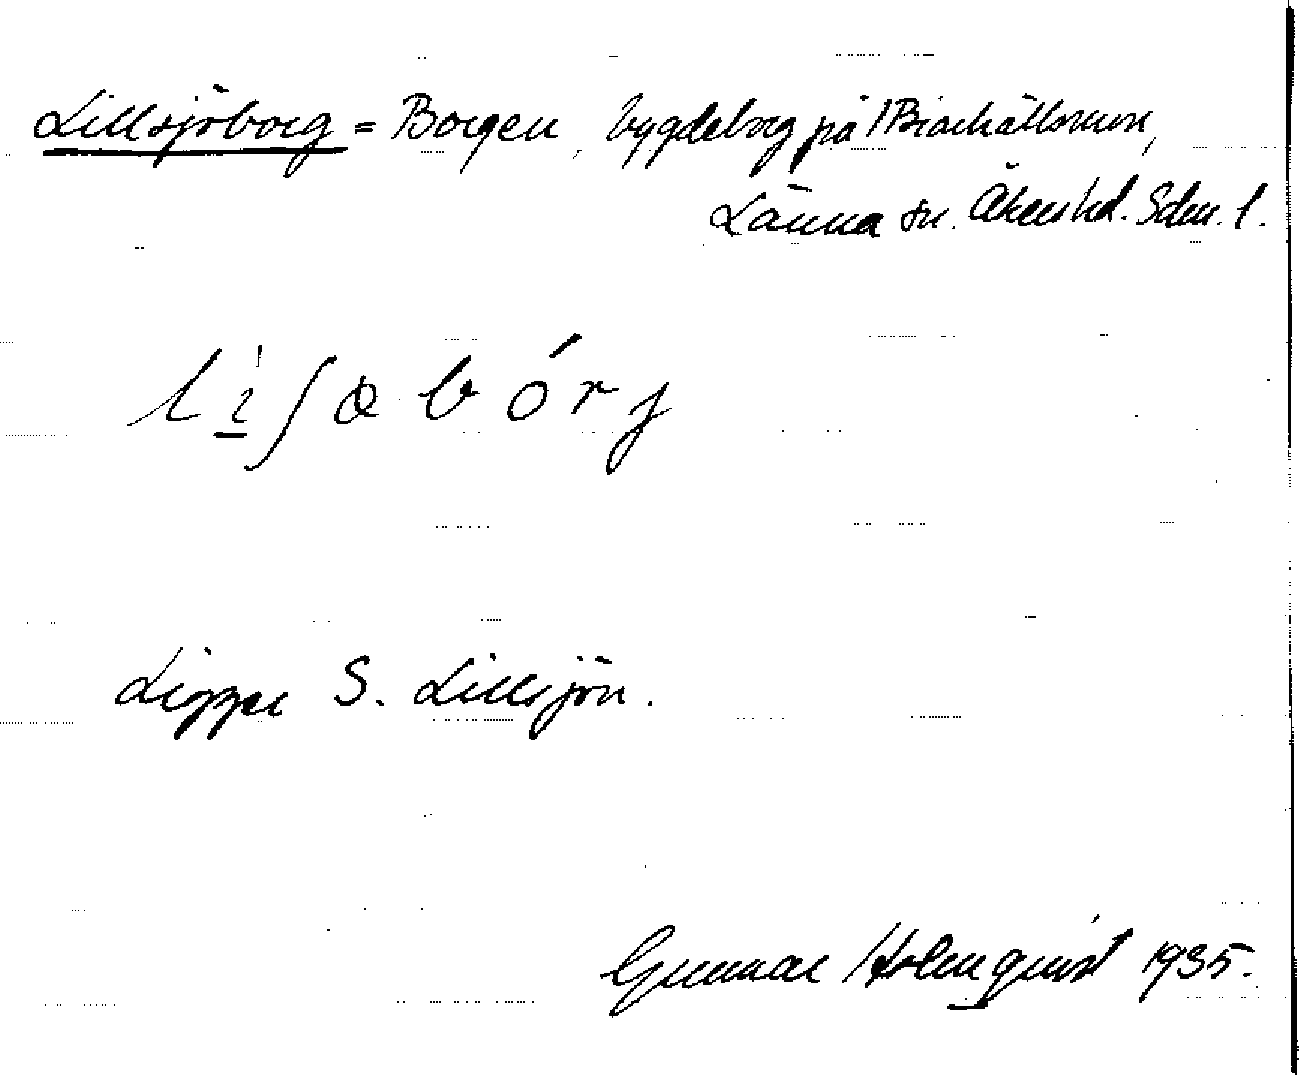 Lillsjöborg = Borgen, bygdeborg på
Länna sn. Åkers hd. Sdm. l.
Ligger S. Lillsjön.
Gunnar Holmquist 1935.